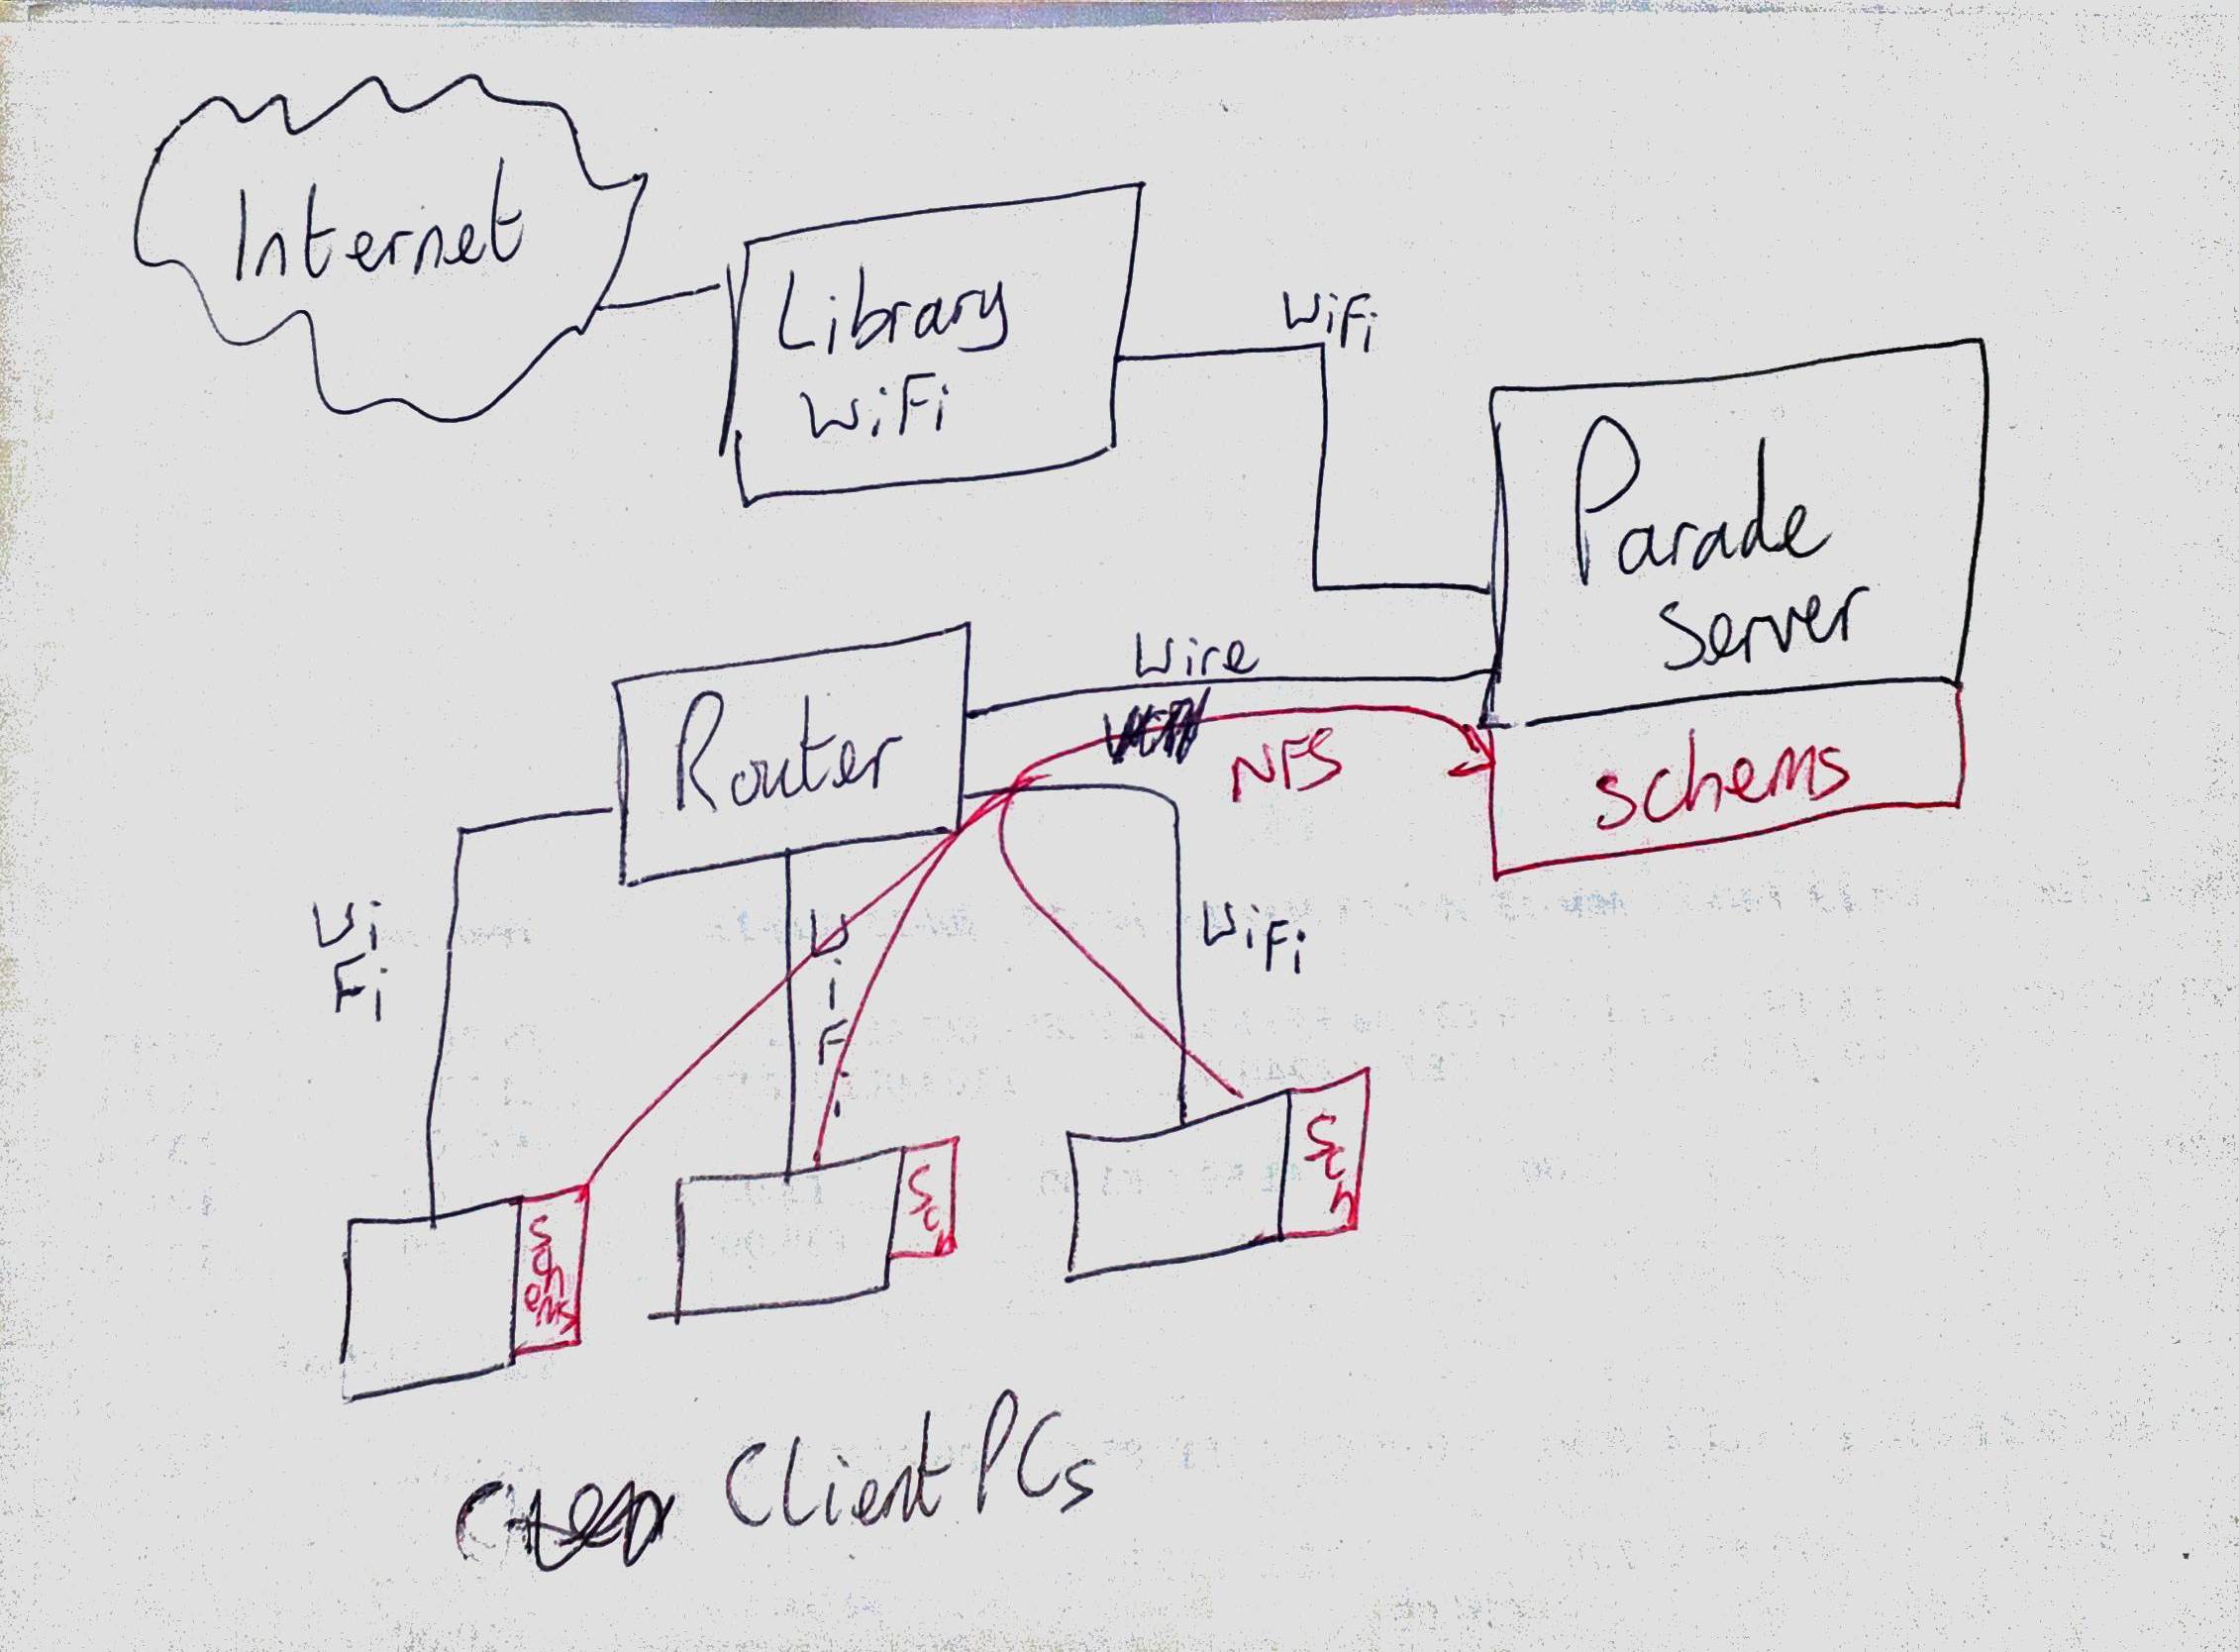 Internet
Library
WiFi
WiFi
Parade
Server
Wire
Router
NFS
schems
Wi
Fi
W
i
F
i
WiFi
Schems
Sch
Sch
Client PCs